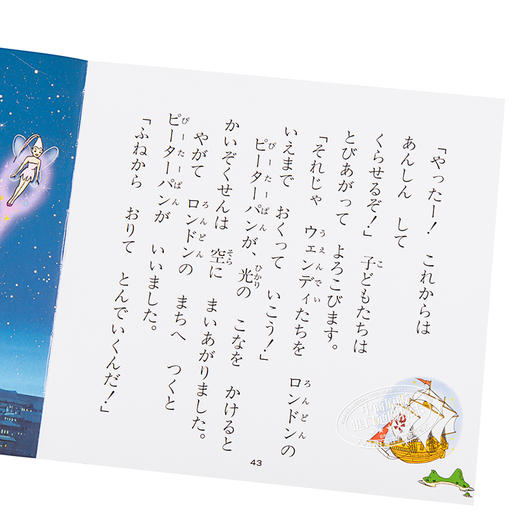 「やったー！ これからは
あんしん して
くらせるぞ！」 子どもたちは
とびあがって よろこびます。
「それじゃ ウェンディたちを ロンドンの
いえまで おくって いこう！」
ピーターパンが、光の こなを かけると
かいぞくせんは 空に まいあがりました。
やがて ロンドンの まちへ つくと
ピーターパンが いいました。
「ふねから おりて とんでいくんだ！」
43